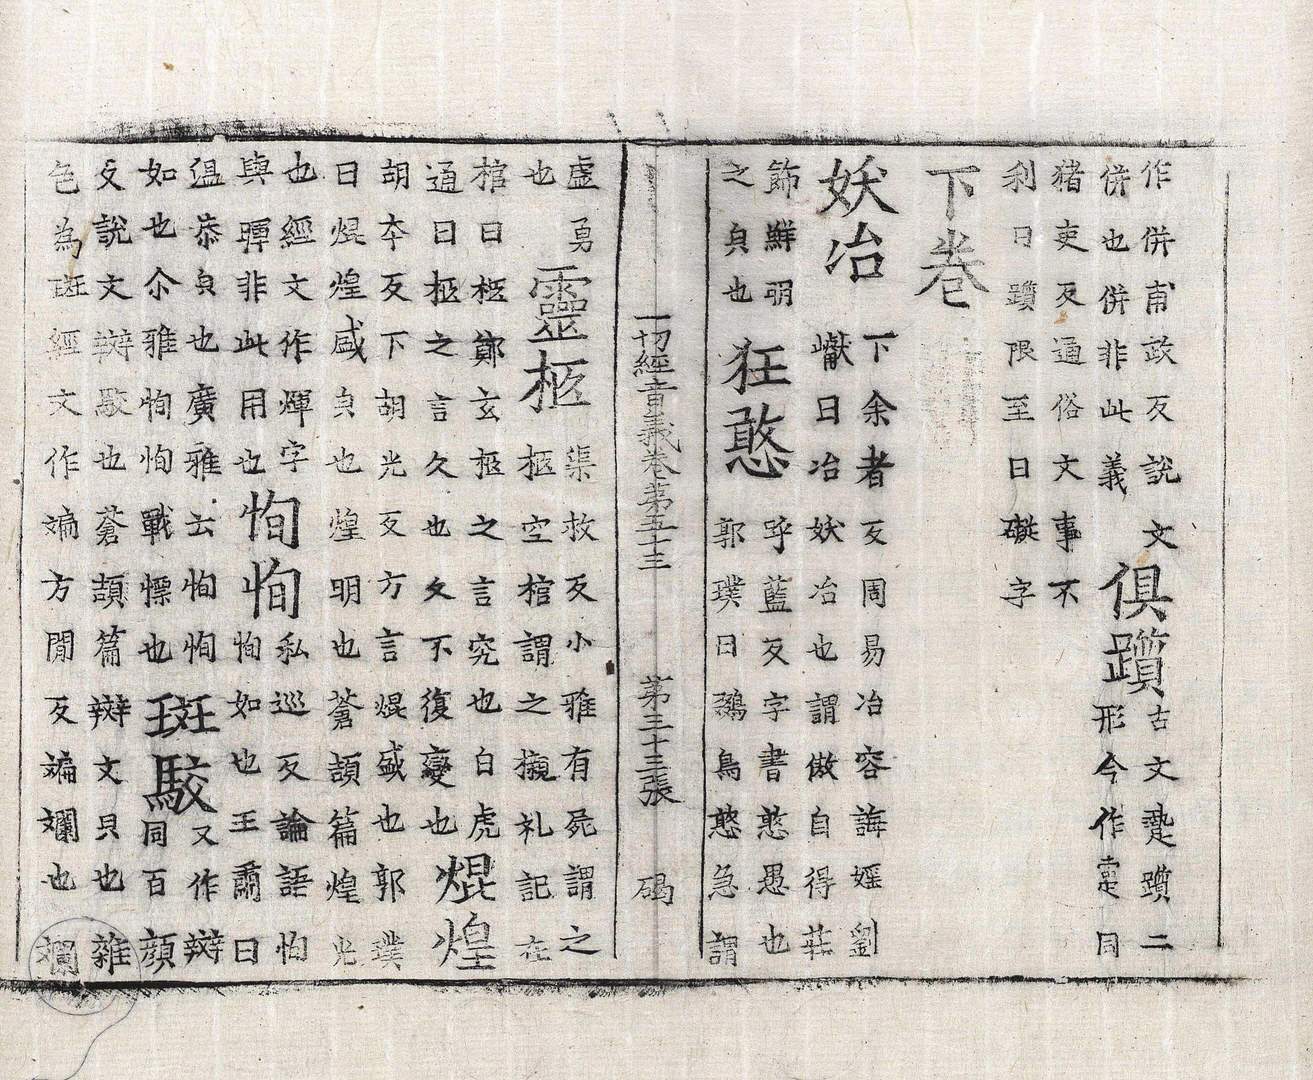 作併甫政反說文
併也併非此義
俱躓
古文躓二
形今作疐同
猪吏反通俗文事不
利曰躓限至曰礙字
下卷
妖冶
下余者反周易冶容誨婬劉
巘曰冶妖冶也謂傲自得莊
飾鮮明
之皃也
狂憨
呼藍反字書憨愚也
郭璞曰鵎鳥憨急謂
一切經音義卷第五十三　第三十三張　碣
虛勇
也
靈柩
渠救反小雅有屍謂之
柩空棺謂之櫬礼記在
棺曰柩鄭玄柩之言究也白虎
通曰柩之言久也久不復變也
焜煌
胡本反下胡光反方言焜盛也郭璞
曰焜煌盛皃也煌明也蒼頡篇煌光
也經文作煇字
與曎非此用也
恂恂
私巡反論語恂
恂如也王肅曰
溫恭皃也廣雅云恂恂
如也尒雅恂恂戰慄也
斑駮
又作辬
同百顏
反說文辬駮也蒼頡篇辬文皃也雜
色為斑經文作斒方閒反斒斕也斕